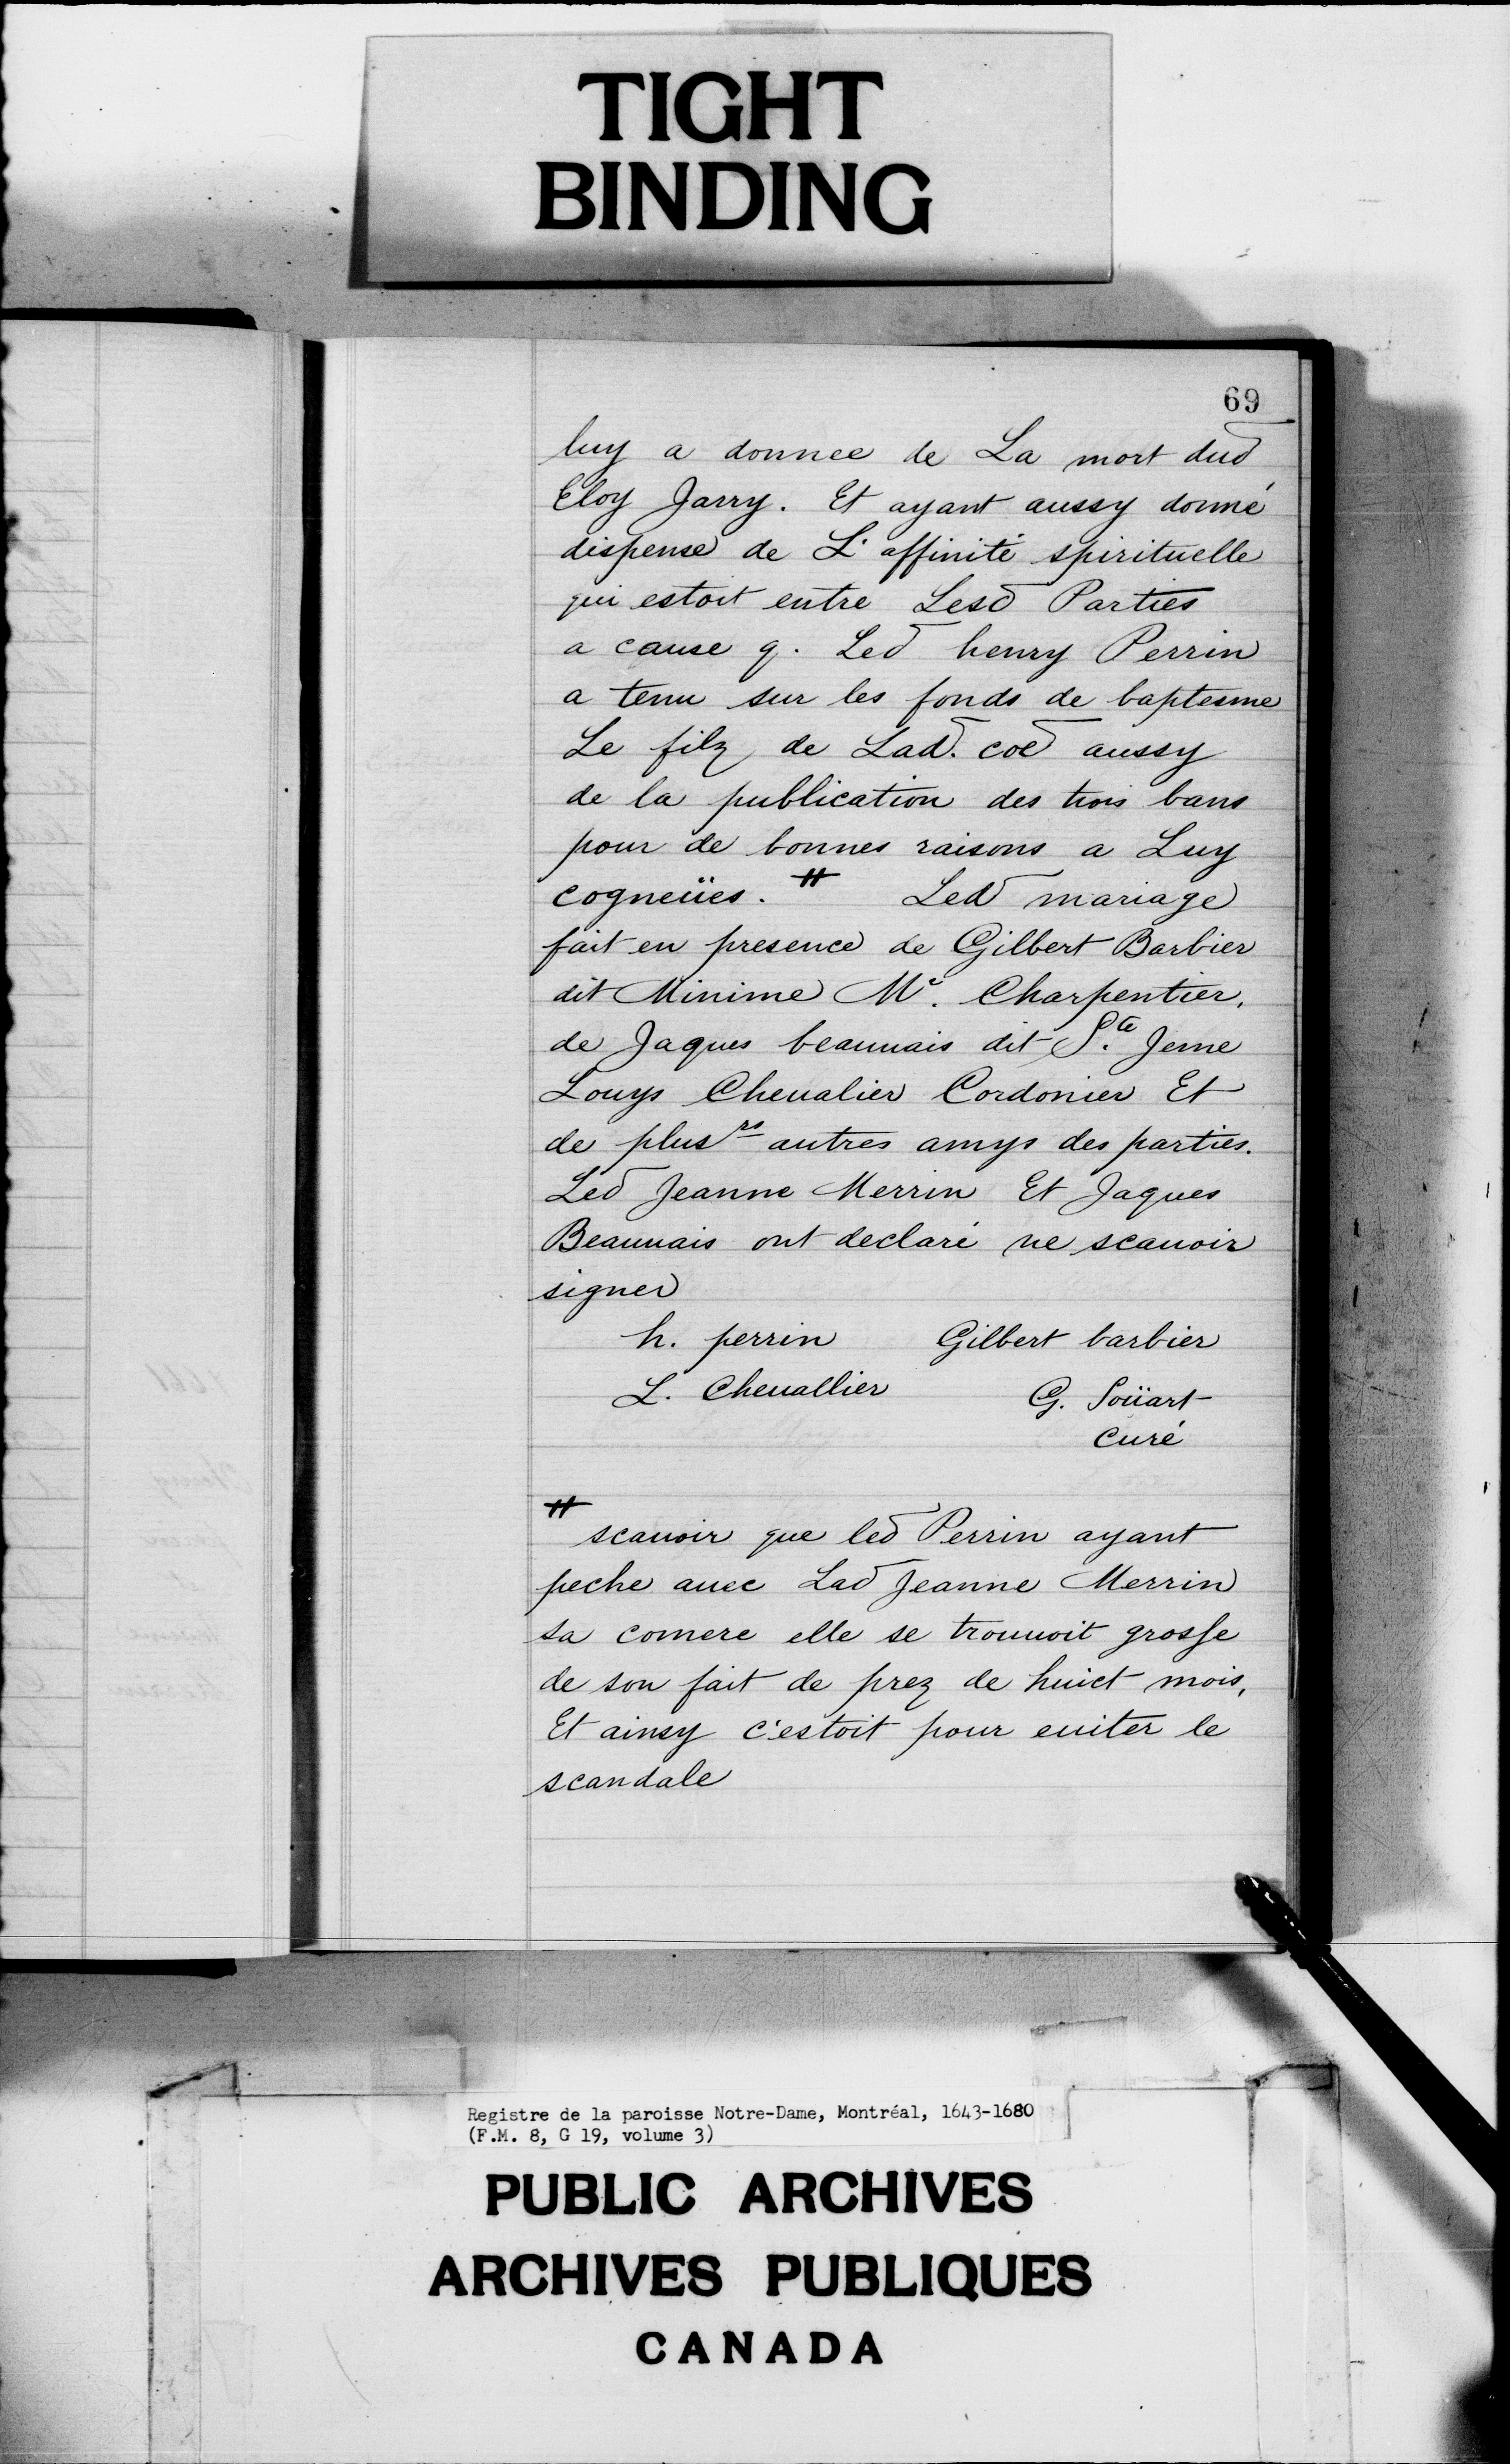 TIGHT
BINDING
69
luy a donnee de La mort dud
Eloy Jarry. Et ayant aussy donné
dispense de L'affinité spirituelle
qui estoit entre Lesd Parties
a cause q. Led henry Perrin
a tenu sur les fonds de baptesme
Le filz de Lad. coe aussy
de la publication des trois bans
pour de bonnes raisons a Luy
cogneües. # Led mariage
fait en presence de Gilbert Barbier
dit Minime Me. Charpentier,
de Jaques beauuais dit Ste. Jeme
Louys Cheualier Cordonier Et
de plusrs autres amys des parties.
Led Jeanne Merrin Et Jaques
Beauuais ont declaré ne scauoir
signer
h. perrin Gilbert barbier
L. Cheuallier G. Soüart
curé
# scauoir que led Perrin ayant
peche auec Lad Jeanne Merrin
sa comere elle se trouuoit grosse
de son fait de prez de huict mois,
Et ainsy c'estoit pour euiter le
scandale
Registre de la paroisse Notre-Dame, Montréal, 1643-1680
(F.M. 8, G 19, volume 3)
PUBLIC ARCHIVES
ARCHIVES PUBLIQUES
CANADA